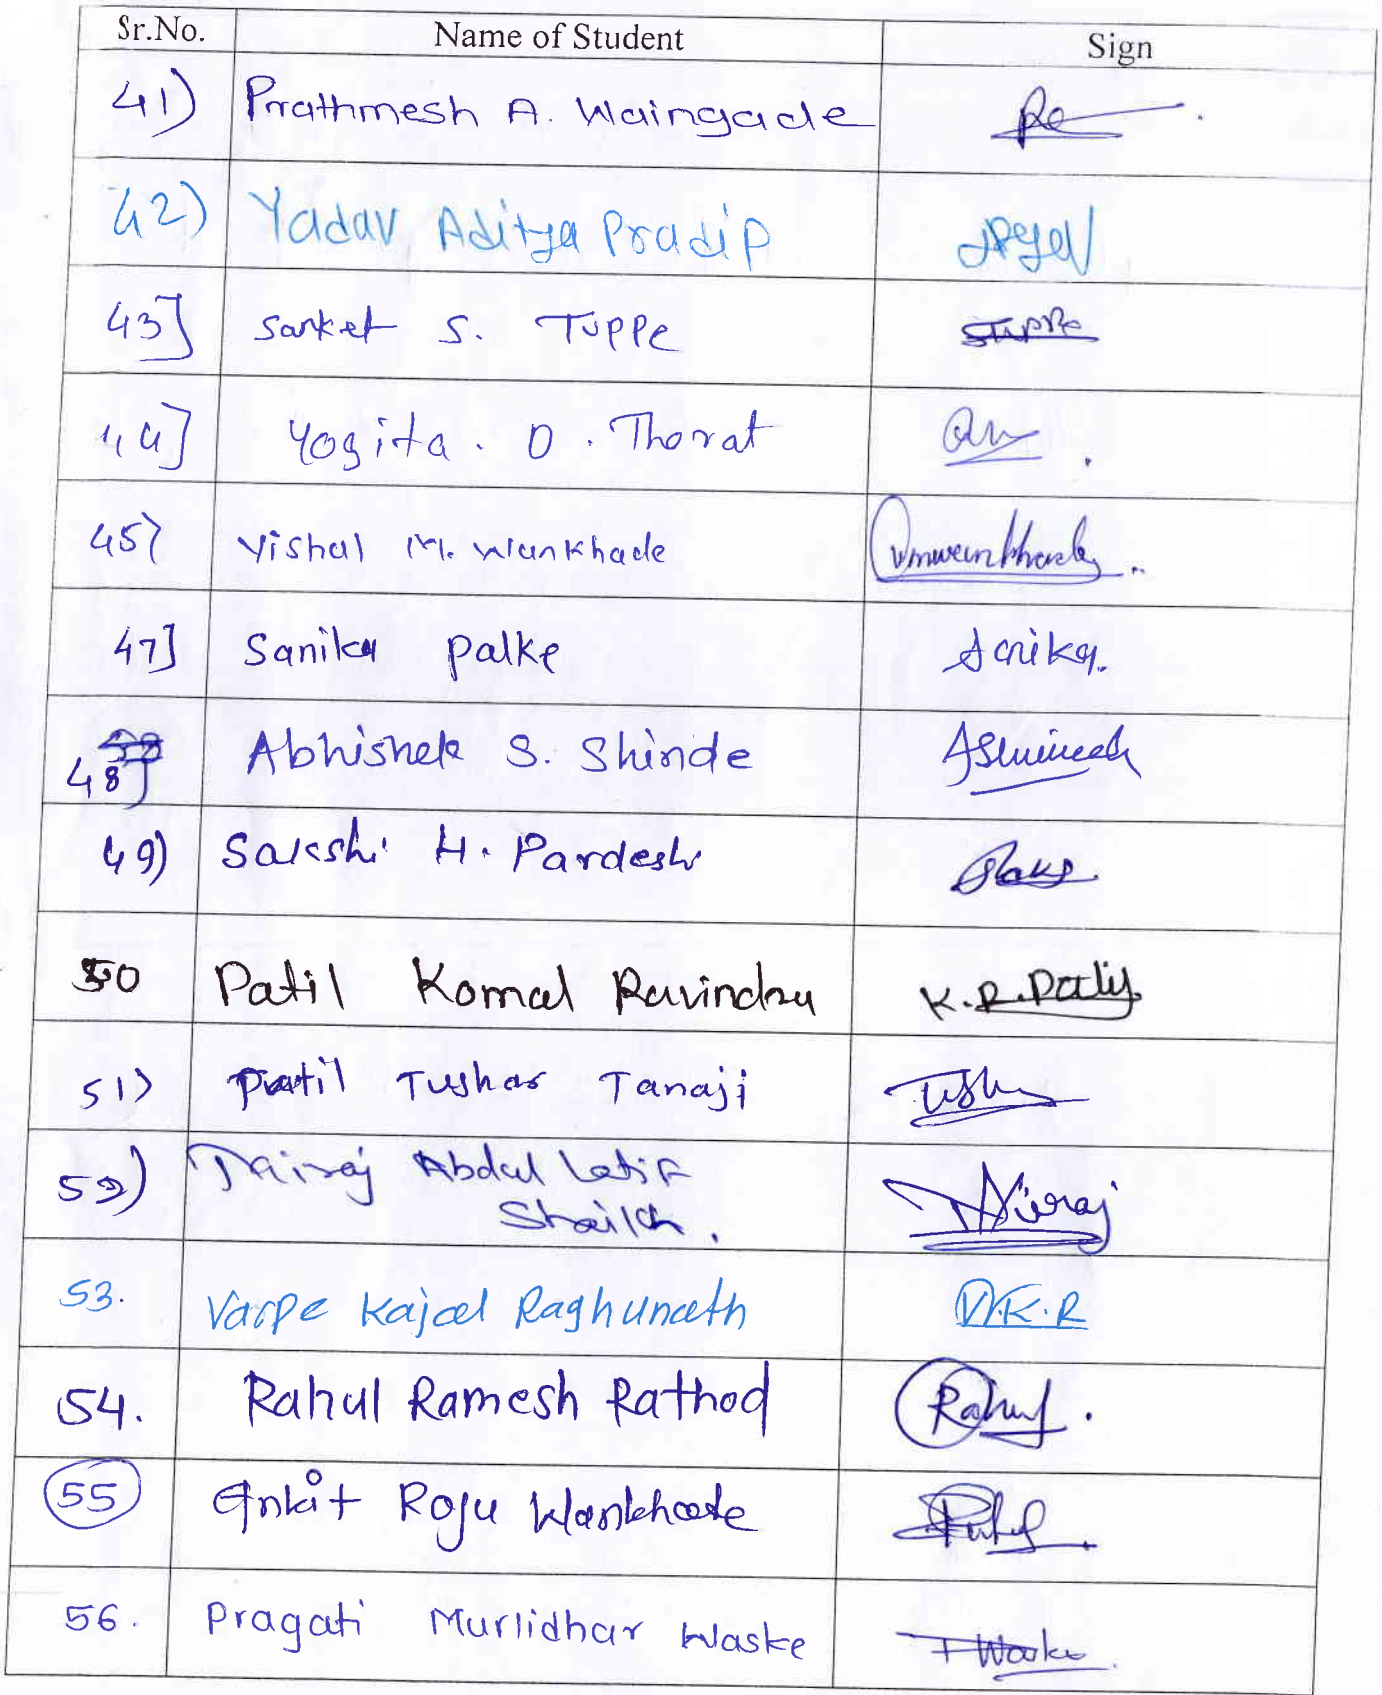 Sr.No. Name of Student Sign
41) Prathmesh A. Waingade
42) Yadav Aditya Pradip
43] Sanket S. Tuppe STuppe
44] Yogita . D . Thorat
45) Vishal M. Wankhade Vmwankhade
47] Sanika Palke Sanika.
48] Abhishek S. Shinde
49) Sakshi H. Pardeshi
50 Patil Komal Ravindra K.R.Patil
51) Patil Tushar Tanaji Tush
52) Abdul Latif
Shaikh .
53. Varpe Kajal Raghunath V.K.R
54. Rahul Ramesh Rathod Rahul .
55 Ankit Raju Wankhade
56. Pragati Murlidhar Waske